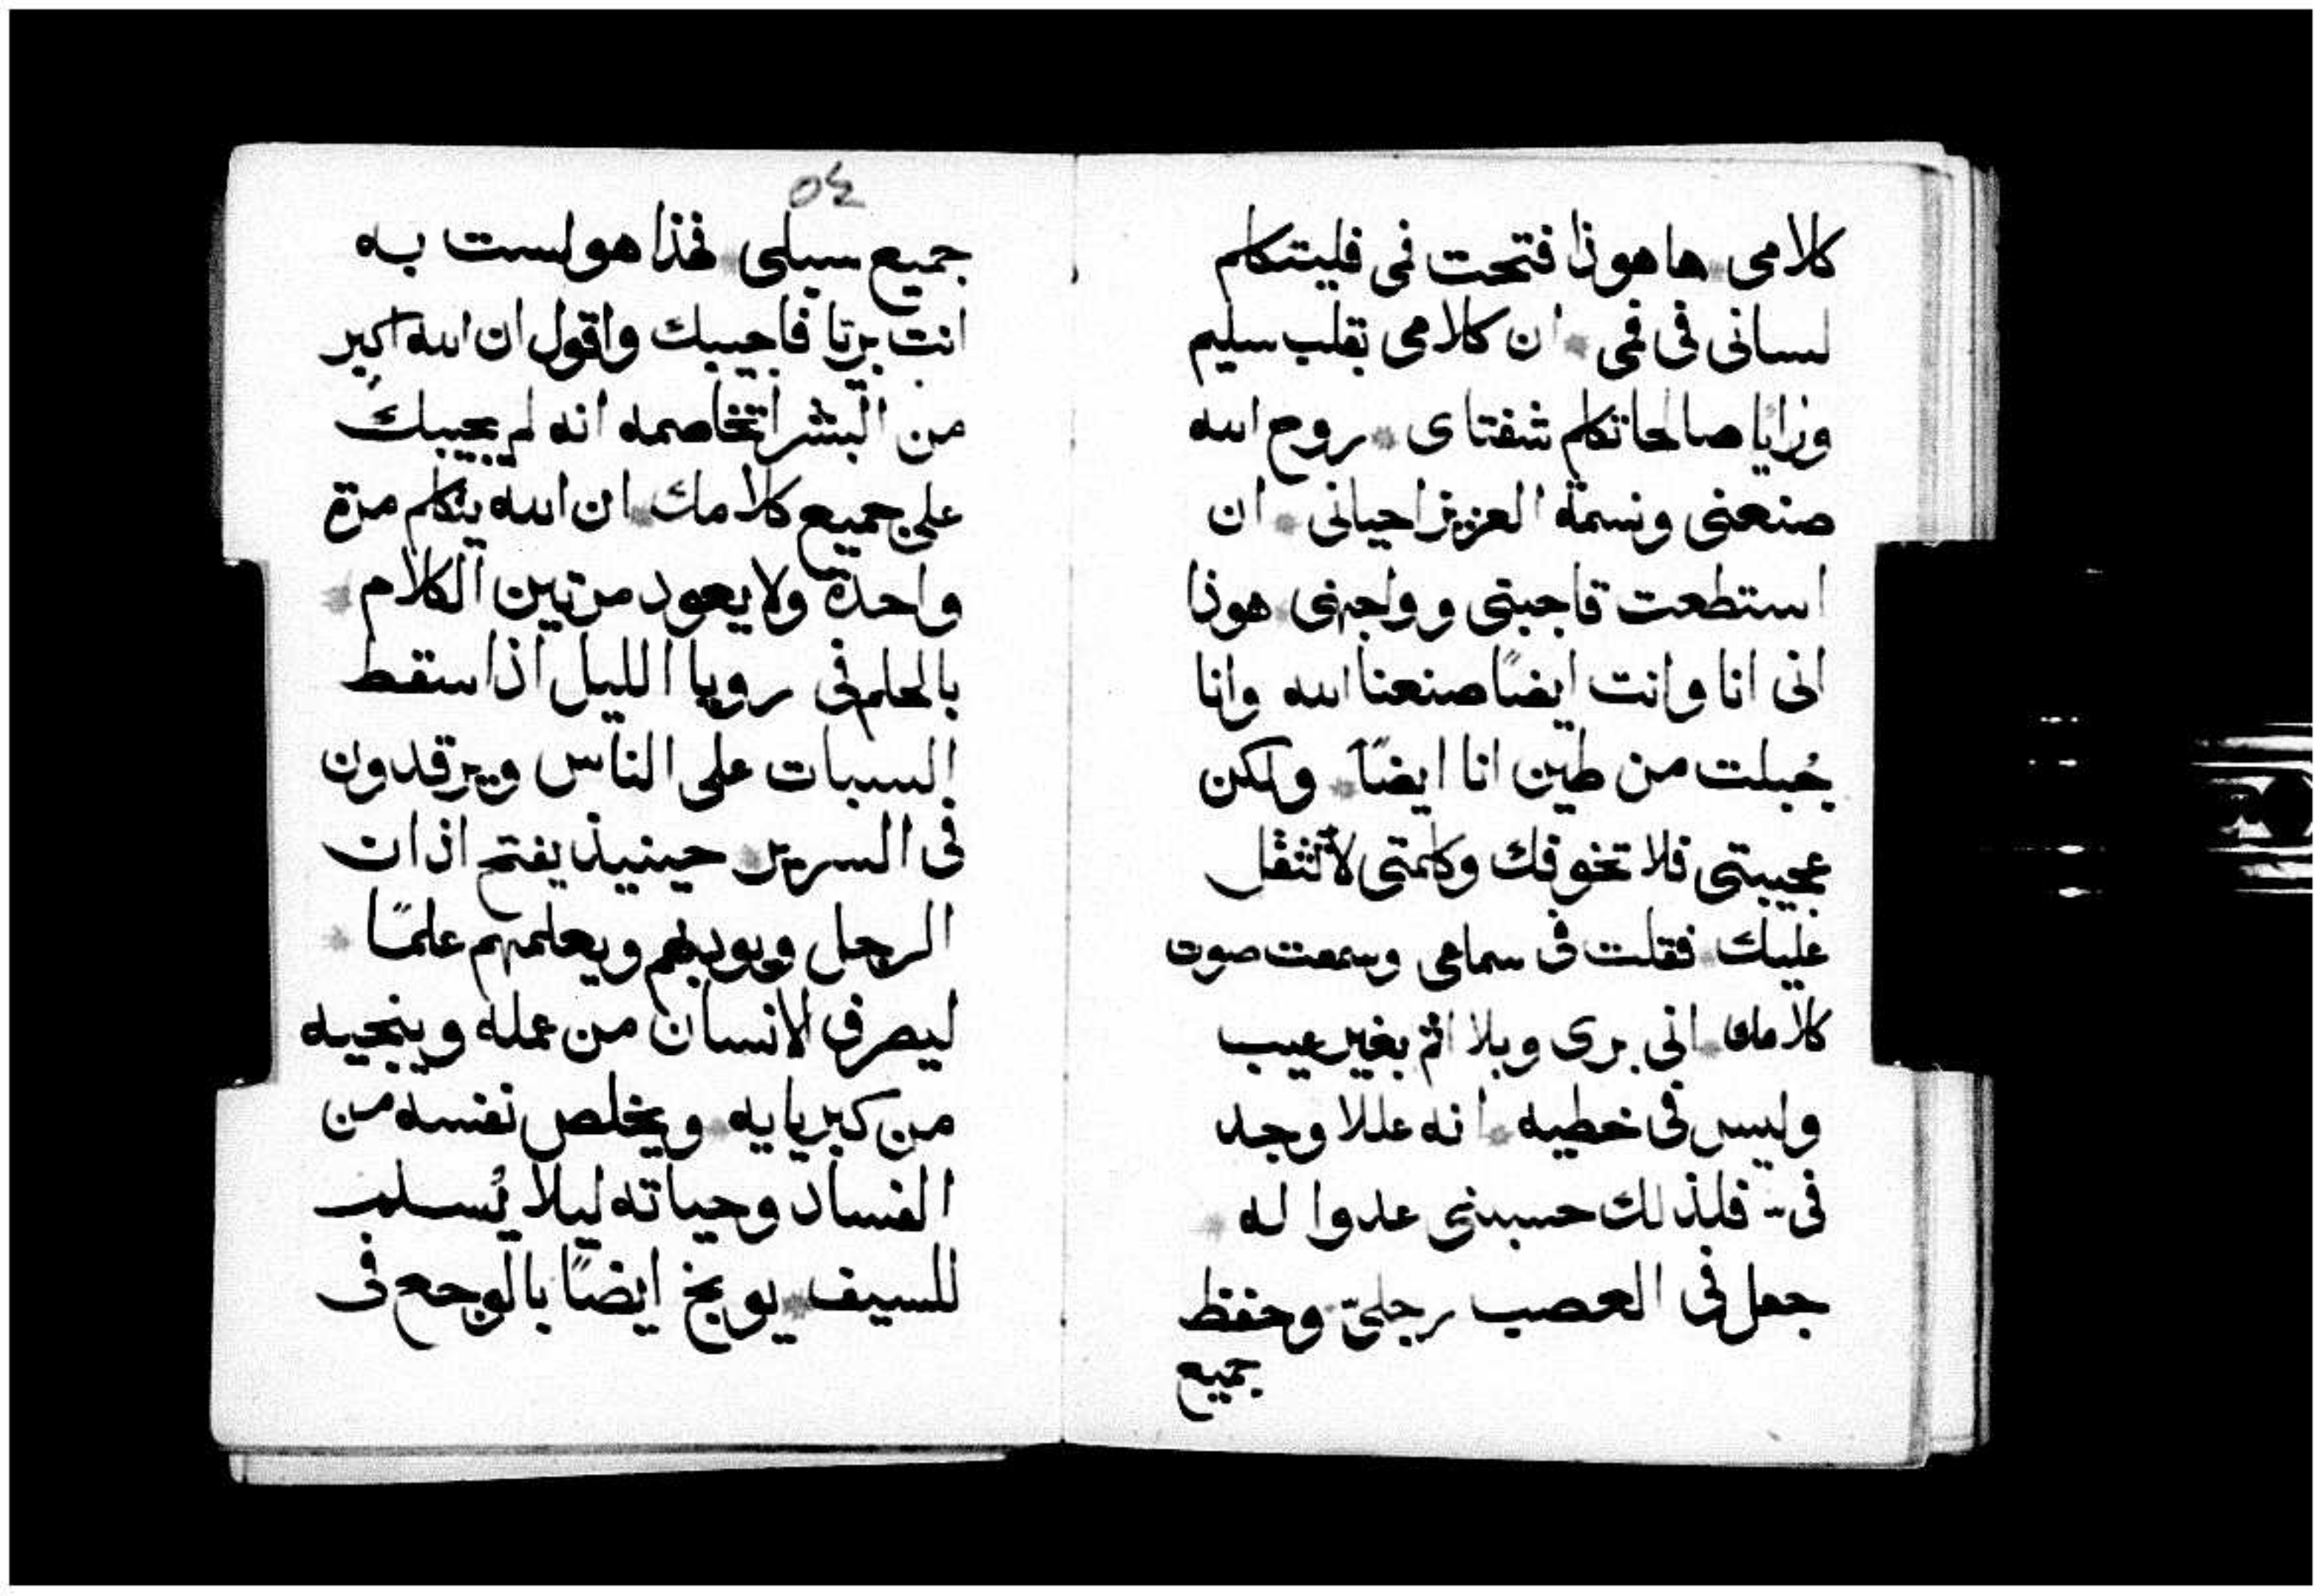 كلامى * هاهوذا فتحت فمى فليتكلم
لسانى فى فمى * ان كلامى بقلب سليم
ورايا صالحا تكلم شفتاى * روح الله
صنعنى ونسمة العزيز احيانى * ان
استطعت فاجبنى وواجهنى * هوذا
انى انا وانت ايضًا صنعنا الله وانا
جُبلت من طين انا ايضًا * ولكن
عجيبتى فلا تخوفك وكلمتى لا تثقل
عليك * فقلت فى سماعى وسمعت صوت
كلامك * انى برى وبلا اثم بغير عيب
وليس فى خطيه * انه عللا وجد
فى - فلذلك حسبنى عدوا له *
جعل فى العصب رجلىّ * وحفظ
جميع
٥٤
جميع سبلى * فهذا هو لست به
انت برتا فاجيبك واقول ان الله اكبر
من البشر اتخاصمه انه لم يجيبك
على جميع كلامك * ان الله يتكلم مرة
واحدة ولا يعود مرتين الكلام *
بالحلم فى رويا الليل اذا سقط
السبات على الناس ويرقدون
فى السرير * حينيذ يفتح اذان
الرجل ويودبهم ويعلمهم علمًا *
ليصرف الانسان من عمله وينجيه
من كبريايه * ويخلص نفسه من
الفساد وحياته ليلا يُسلم
للسيف * يوبخ ايضًا بالوجع فى